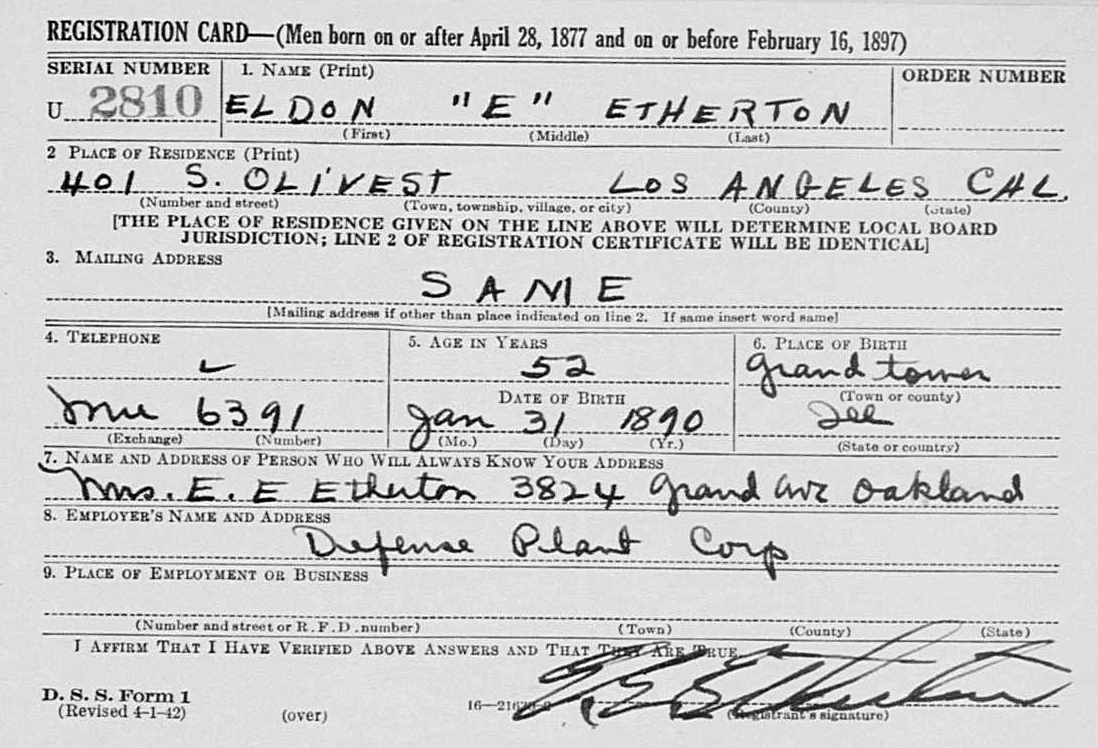 REGISTRATION CARD—(Men born on or after April 28, 1877 and on or before February 16, 1897)
SERIAL NUMBER 1. NAME (Print) ORDER NUMBER
U 2810 ELDON "E" ETHERTON
(First) (Middle) (Last)
2 PLACE OF RESIDENCE (Print)
401 S. OLIVEST LOS ANGELES CAL.
(Number and street) (Town, township, village, or city) (County) (State)
[THE PLACE OF RESIDENCE GIVEN ON THE LINE ABOVE WILL DETERMINE LOCAL BOARD
JURISDICTION; LINE 2 OF REGISTRATION CERTIFICATE WILL BE IDENTICAL]
3. MAILING ADDRESS
SAME
[Mailing address if other than place indicated on line 2. If same insert word same]
4. TELEPHONE 5. AGE IN YEARS 6. PLACE OF BIRTH
52 Grand tower
DATE OF BIRTH (Town or county)
6391 Jan 31 1890 Ill
(Exchange) (Number) (Mo.) (Day) (Yr.) (State or country)
7. NAME AND ADDRESS OF PERSON WHO WILL ALWAYS KNOW YOUR ADDRESS
Mrs. E. E Etherton 3824 Grand ave Oakland
8. EMPLOYER'S NAME AND ADDRESS
Defense Plant Corp
9. PLACE OF EMPLOYMENT OR BUSINESS
(Number and street or R. F. D. number) (Town) (County) (State)
I AFFIRM THAT I HAVE VERIFIED ABOVE ANSWERS AND THAT THEY ARE TRUE.
E E Etherton
D. S. S. Form 1
(Revised 4-1-42) (over) (Registrant's signature)